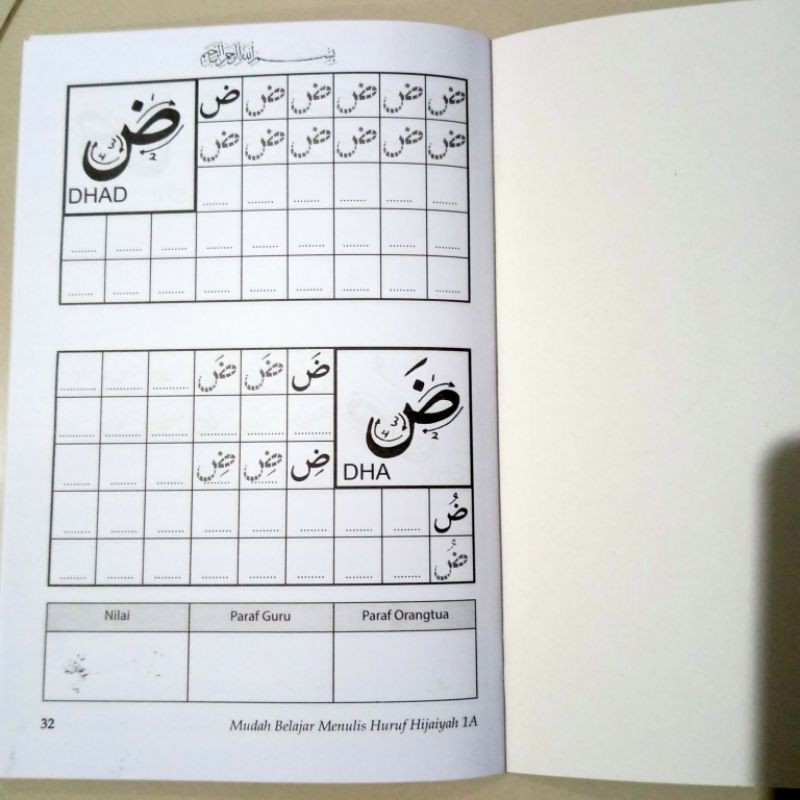 بِسْمِ اللهِ الرَّحْمٰنِ الرَّحِيْمِ
ض 1 2 3 4
DHAD
ض ض ض ض ض ض
ض ض ض ض ض ض
ضَ 1 2 3 4
DHA
ضَ ضَ ضَ
ضِ ضِ ضِ
ضُ
ضُ
Nilai Paraf Guru Paraf Orangtua
32 Mudah Belajar Menulis Huruf Hijaiyah 1A